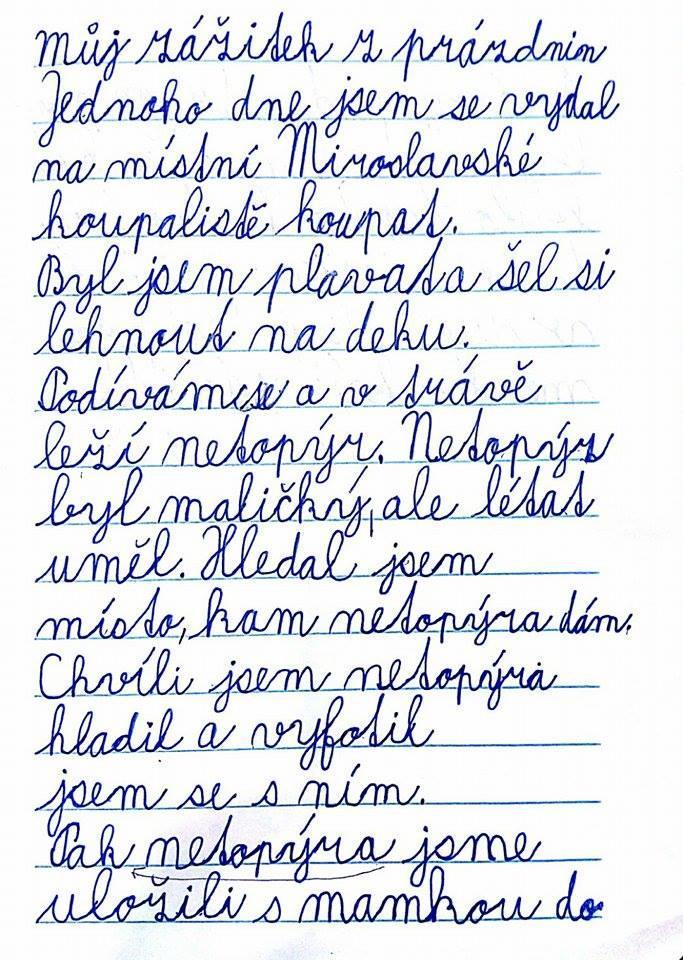 Můj zážitek z prázdnin
Jednoho dne jsem se vydal
na místní Miroslavské
koupaliště koupat.
Byl jsem plavat a šel si
lehnout na deku.
Podívám se a v trávě
leží netopýr. Netopýr
byl maličký, ale létat
uměl. Hledal jsem
místo, kam netopýra dám.
Chvíli jsem netopýra
hladil a vyfotil
jsem se s ním.
Pak netopýra jsme
uložili s mamkou do